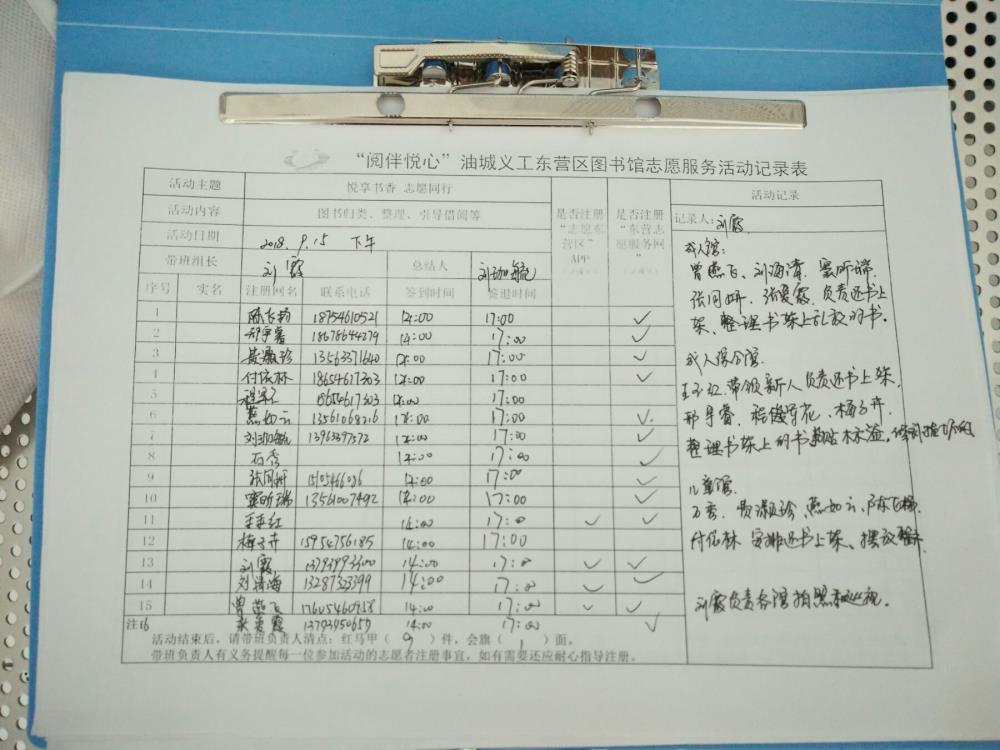 “阅伴悦心”油城义工东营区图书馆志愿服务活动记录表
活动主题 悦享书香 志愿同行
活动内容 图书归类、整理、引导借阅等
活动日期 2018.9.15 下午
带班组长 刘霞 总结人 刘珈毓
是否注册“志愿东营区”APP
是否注册“东营志愿服务网”
序号 实名 注册网名 联系电话 签到时间 签退时间
1 18754610521 14:00 17:00 ✓
2 18678644279 14:00 17:00 ✓
3 13563371640 14:00 17:00 ✓
4 付依林 18654617303 14:00 17:00 ✓
5 15654617303 14:00 17:00
6 燕如云 17:00 ✓
7 刘珈毓 13963397372 14:00 17:00 ✓
8 石秀 14:00 17:00 ✓
9 张同妍 14:00 17:00 ✓
10 窦昕瑞 13561007492 14:00 17:00 ✓
11 14:00 17:00 ✓ ✓
12 梅子卉 15954756185 14:00 17:00
13 刘霞 13793993300 14:00 17:00 ✓ ✓
14 刘清海 13287323399 14:00 17:00 ✓ ✓
15 曾燕飞 17605460958 14:00 17:00 ✓ ✓
注16 张爱霞 13793950659 14:00 17:00 ✓
活动结束后，请带班负责人清点：红马甲（ 9 ）件，会旗（ 1 ）面。
带班负责人有义务提醒每一位参加活动的志愿者注册事宜，如有需要还应耐心指导注册。
活动记录
记录人：刘霞
成人馆：
曾燕飞、刘海清、窦昕瑞、
张同妍、张爱霞、负责还书上
架、整理书架上乱放的书。
成人综合馆：
王玉红、带领新人负责还书上架，
梅子卉
整理书架上的书
儿童馆
石秀、燕如云、陈飞
付依林 安排还书上架、摆放
刘霞负责各馆拍照和巡视。